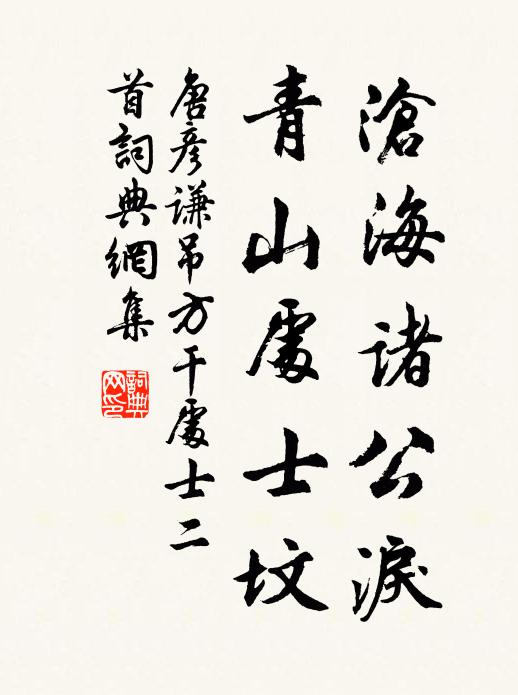 滄海諸公淚
青山處士墳
唐彦謙吊方干處士二
首詞典網集
詞典
网印